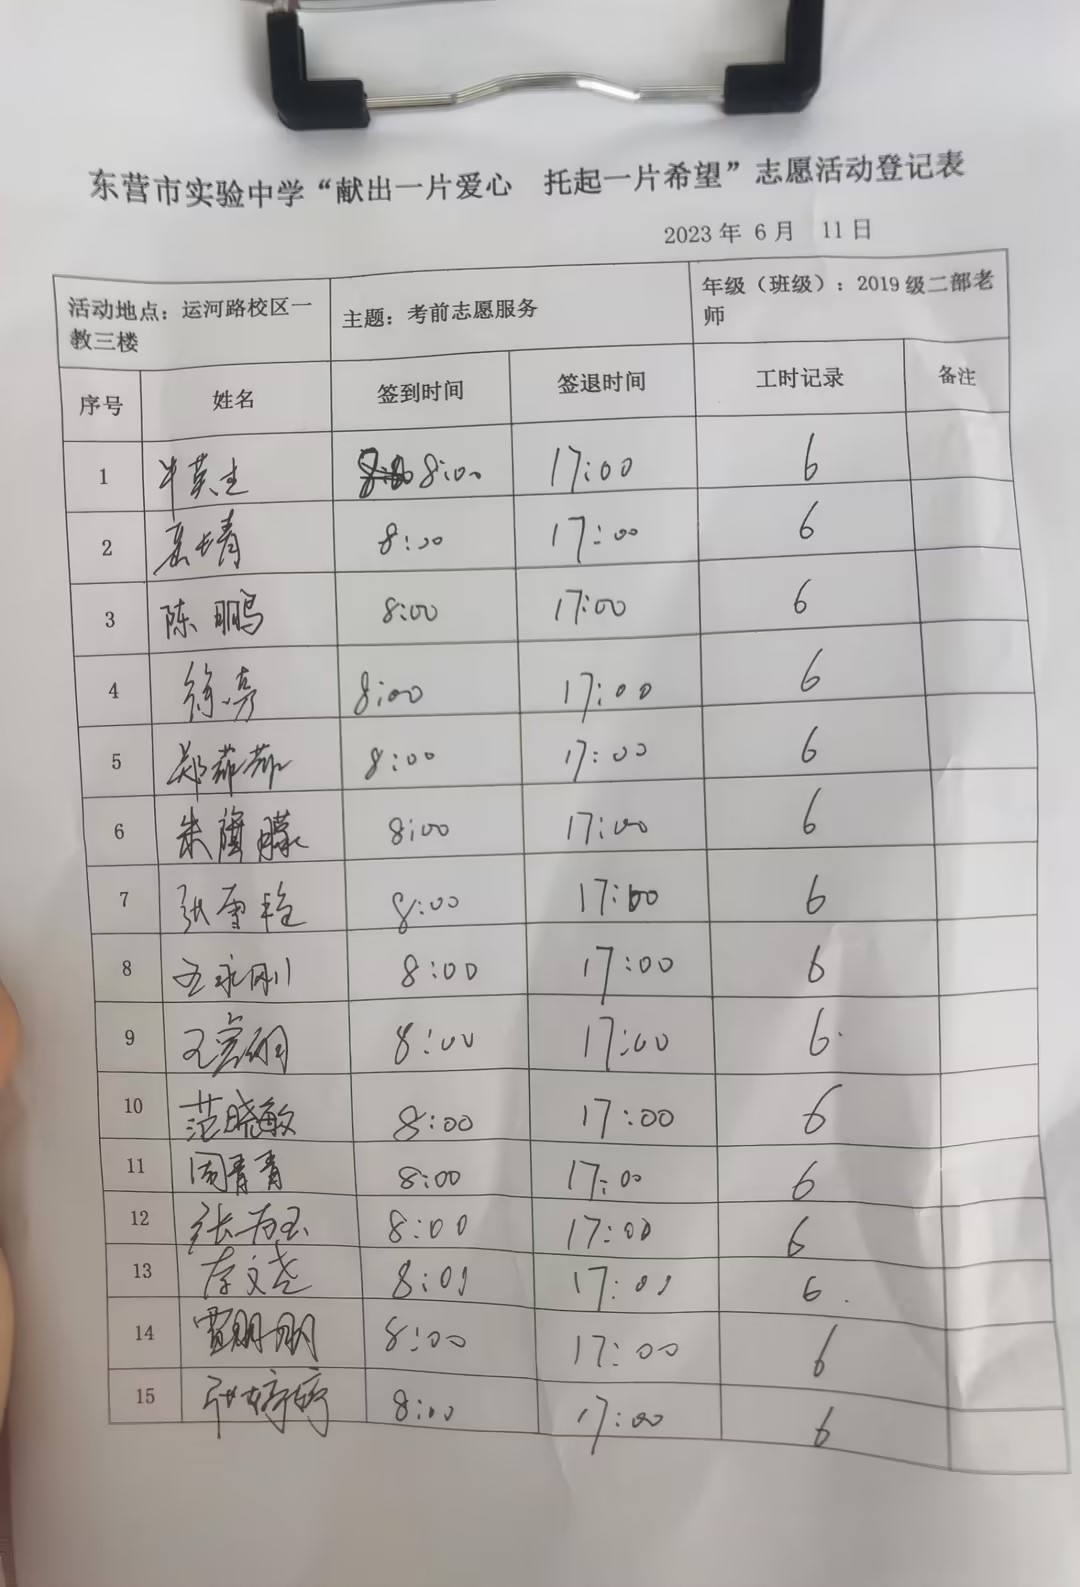 东营市实验中学“献出一片爱心 托起一片希望”志愿活动登记表
2023 年 6 月 11 日
活动地点：运河路校区一教三楼 主题：考前志愿服务 年级（班级）：2019 级二部老师
序号 姓名 签到时间 签退时间 工时记录 备注
1 8:00 17:00 6
2 8:00 17:00 6
3 陈鹏 8:00 17:00 6
4 徐亮 8:00 17:00 6
5 郑茹茹 8:00 17:00 6
6 朱 朦 8:00 17:00 6
7 张雪艳 8:00 17:00 6
8 王永刚 8:00 17:00 6
9 王 8:00 17:00 6
10 范晓敏 8:00 17:00 6
11 周青青 8:00 17:00 6
12 张 玉 8:00 17:00 6
13 李文尧 8:01 17:01 6
14 贾朋朋 8:00 17:00 6
15 张婷婷 8:00 17:00 6